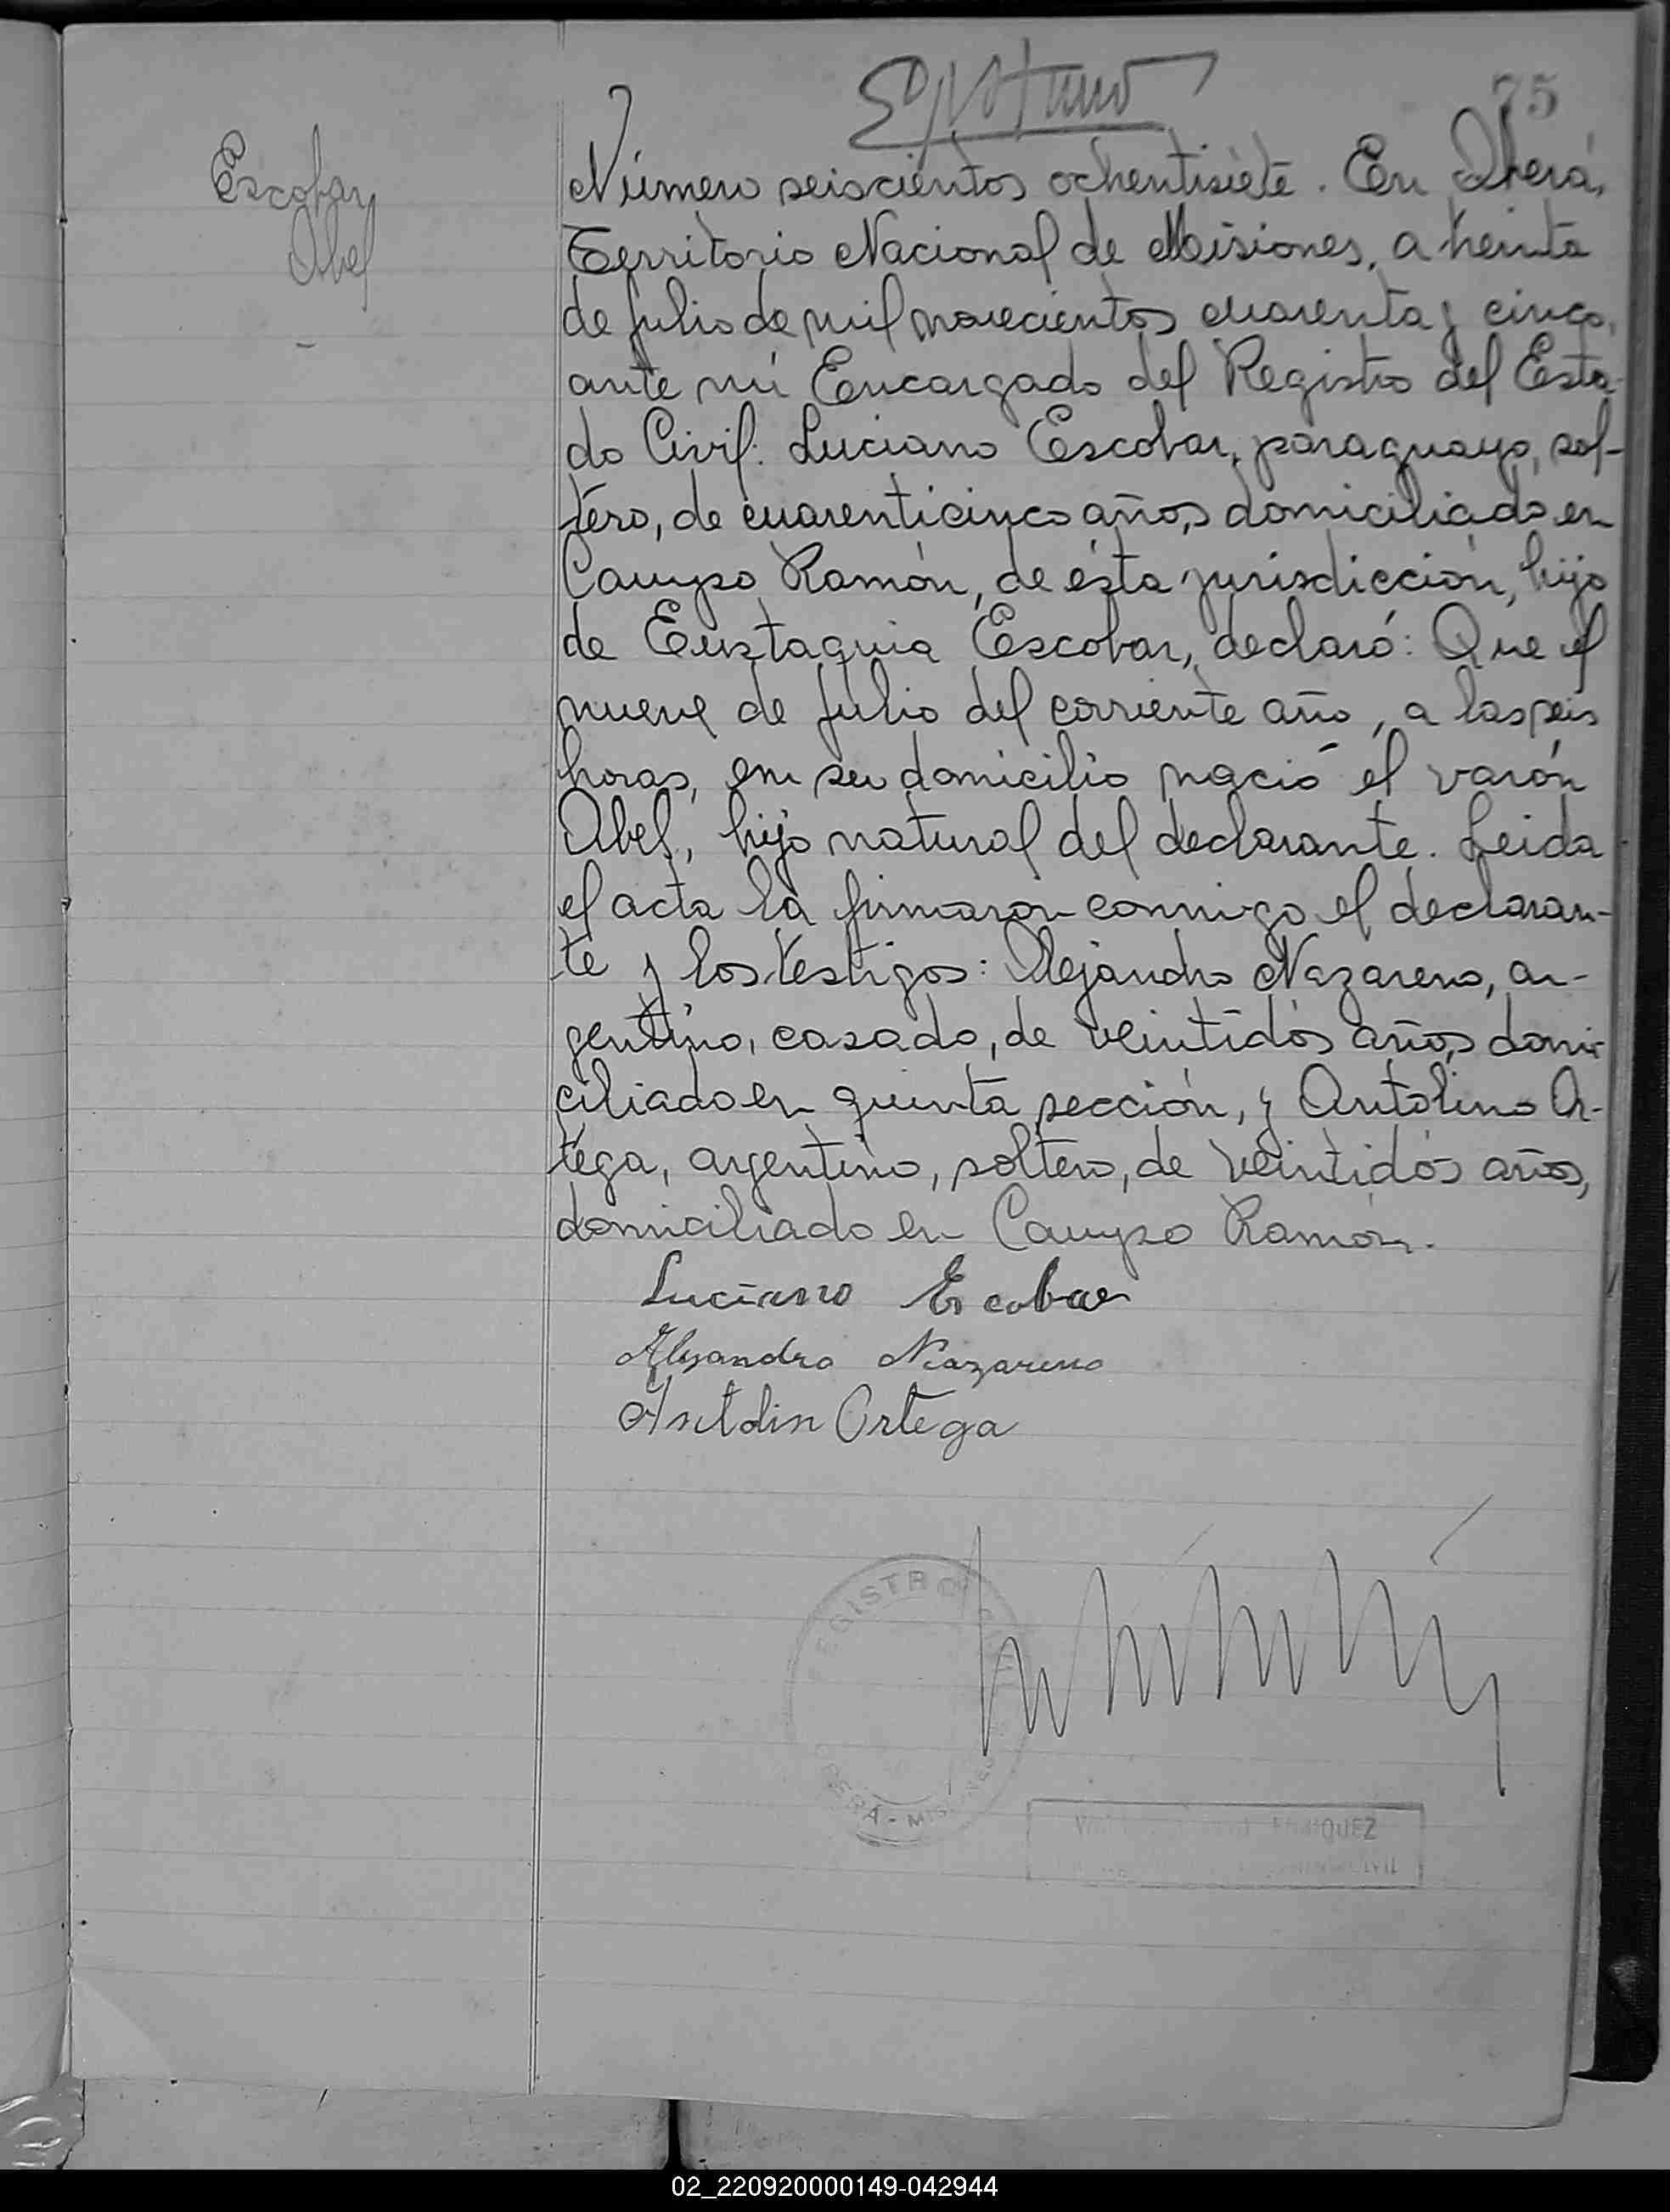 75
Escobar
Abel
Número seiscientos ochentisiete. En Oberá,
Territorio Nacional de Misiones, a treinta
de julio de mil novecientos cuarenta y cinco,
ante mí Encargado del Registro del Esta-
do Civil: Luciano Escobar, paraguayo, sol-
tero, de cuarenticinco años, domiciliado en
Campo Ramón, de ésta jurisdicción, hijo
de Eustaquia Escobar, declaró: Que el
nueve de julio del corriente año, a las seis
horas, en su domicilio nació el varón
Abel, hijo natural del declarante. Leida
el acta la firmaron conmigo el declaran-
te y los testigos: Alejandro Nazareno, ar-
gentino, casado, de veintidós años, domi-
ciliado en quinta sección, y Antolino Or-
tega, argentino, soltero, de veintidós años,
domiciliado en Campo Ramón.
Luciano Escobar
Alejandro Nazareno
Antolin Ortega
REGISTRO CIVIL
OBERÁ - MISIONES
02_220920000149-042944